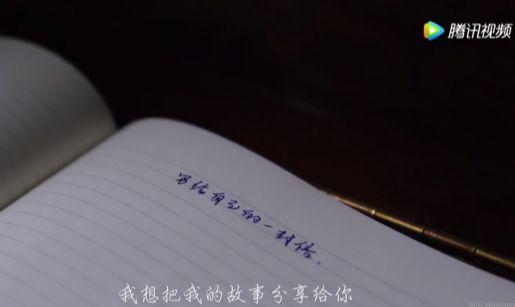 腾讯视频
写给自己的一封信.
我想把我的故事分享给你